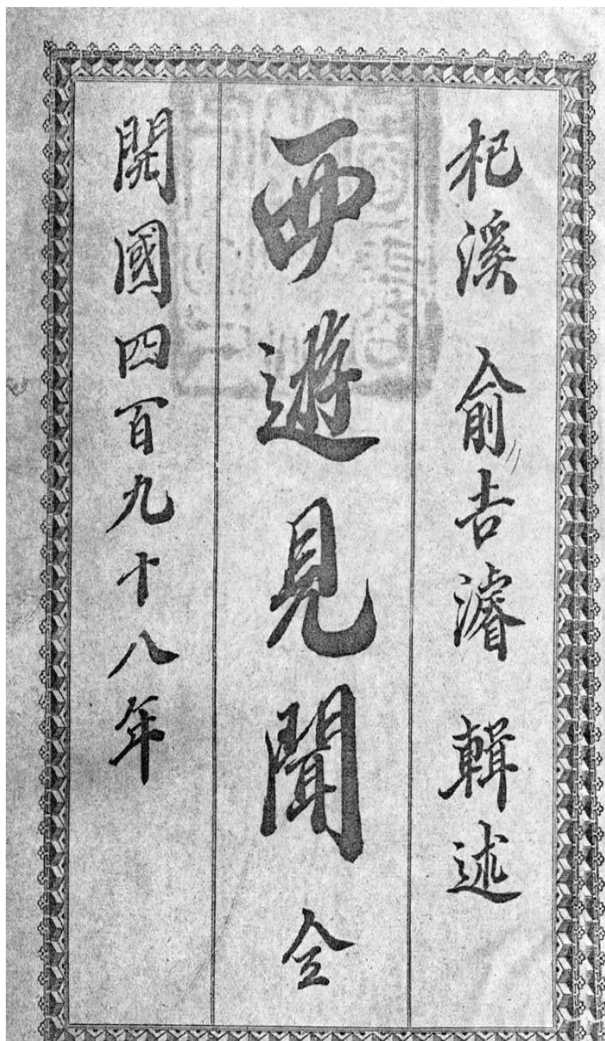 杞溪 俞吉濬 輯述
西遊見聞 全
開國四百九十八年